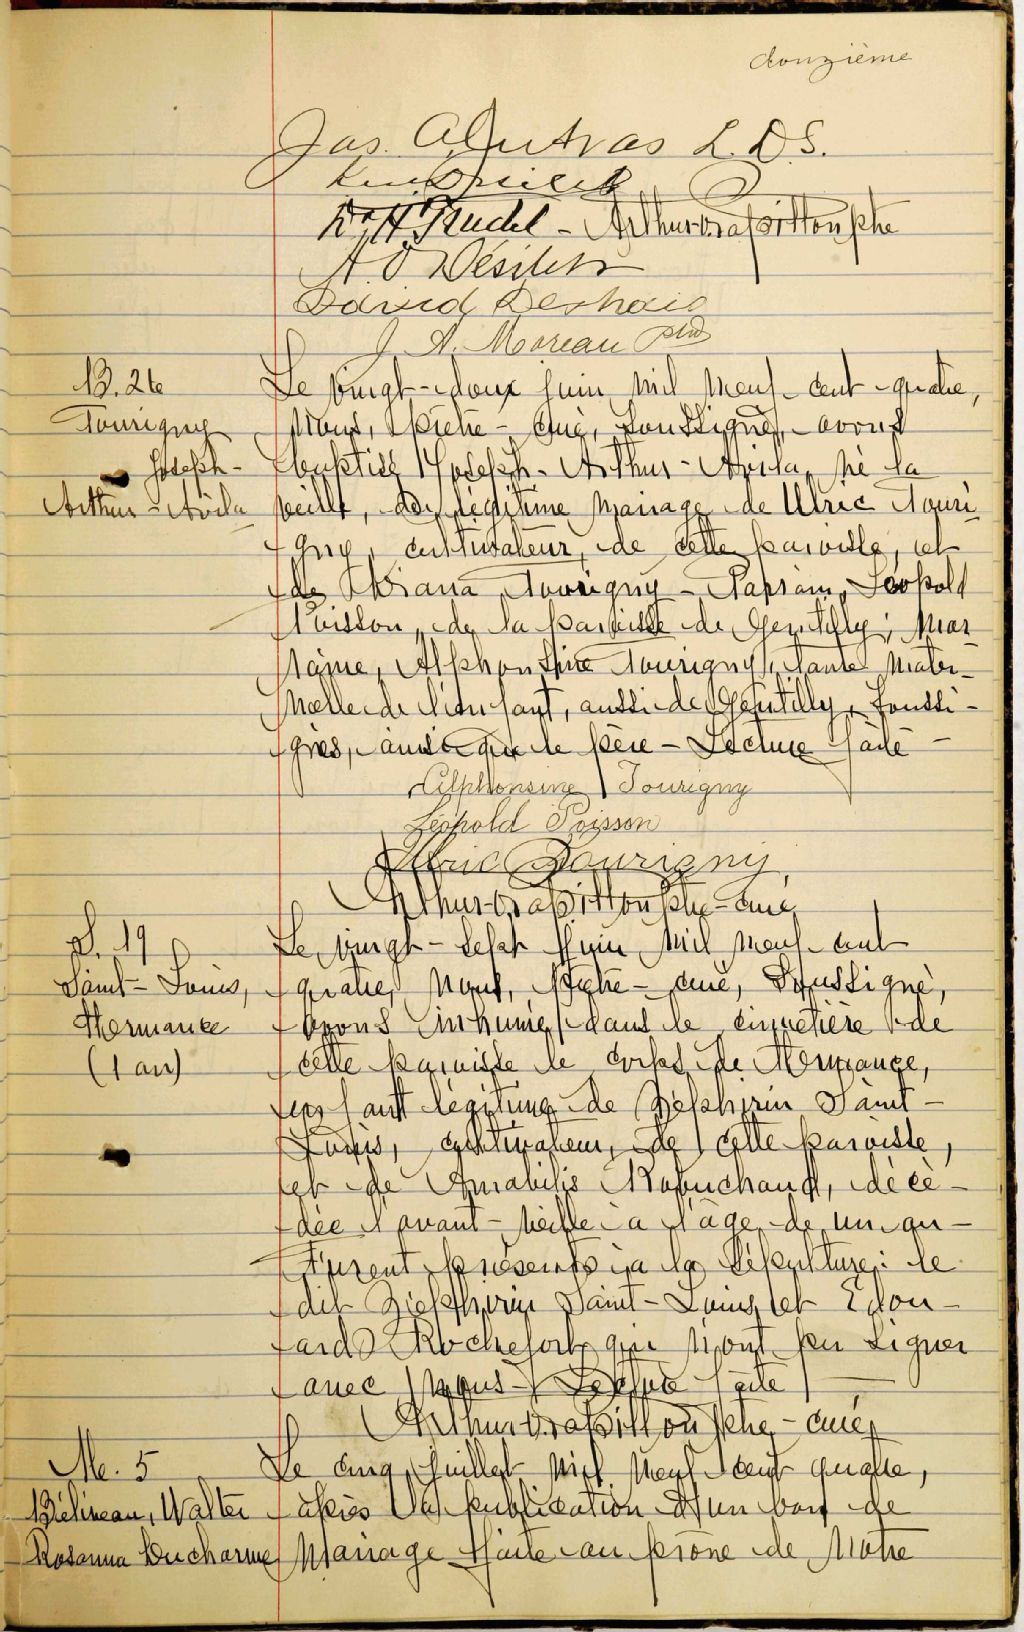 douzième
Jos. A. Dutras L. D. S.
Dr H Trudel - Arthur ptre
A O Désilets
David Deshaies
J. A. Moreau ptre
B. 26
Tourigny
Joseph-
Arthur-Avila
Le vingt-deux juin mil neuf cent quatre,
Nous, prêtre-curé, soussigné, avons
baptisé Joseph-Arthur-Avila, né la
veille, du légitime mariage de Ulric Touri
gny, cultivateur, de cette paroisse, et
de Diana Tourigny - Parrain, Léopold
Poisson, de la paroisse de Gentilly; Mar
raine, Alphonsine Tourigny, tante mater-
nelle de l'enfant, aussi de Gentilly, soussi-
gnés, ainsi que le père - Lecture faite -
Alphonsine Tourigny
Léopold Poisson
Ulric Tourigny
Arthur ptre-curé
S. 19
Saint-Louis,
Hermance
(1 an)
Le vingt-sept juin mil neuf cent
quatre, nous, prêtre-curé, soussigné,
avons inhumé dans le cimetière de
cette paroisse le corps de Hermance,
enfant légitime de Zéphirin Saint-
Louis, cultivateur, de cette paroisse,
et de Amabilis Robuchaud, décé-
dée l'avant-veille à l'âge de un an -
Furent présents à la sépulture: le
dit Zéphirin Saint-Louis, et Edou-
ard Rochefort qui n'ont pu signer
avec nous - Lecture faite
Arthur ptre-curé
M. 5
Béliveau, Walter
Rosanna Ducharme
Le cinq juillet mil neuf cent quatre,
après la publication d'un ban de
mariage faite au prône de notre